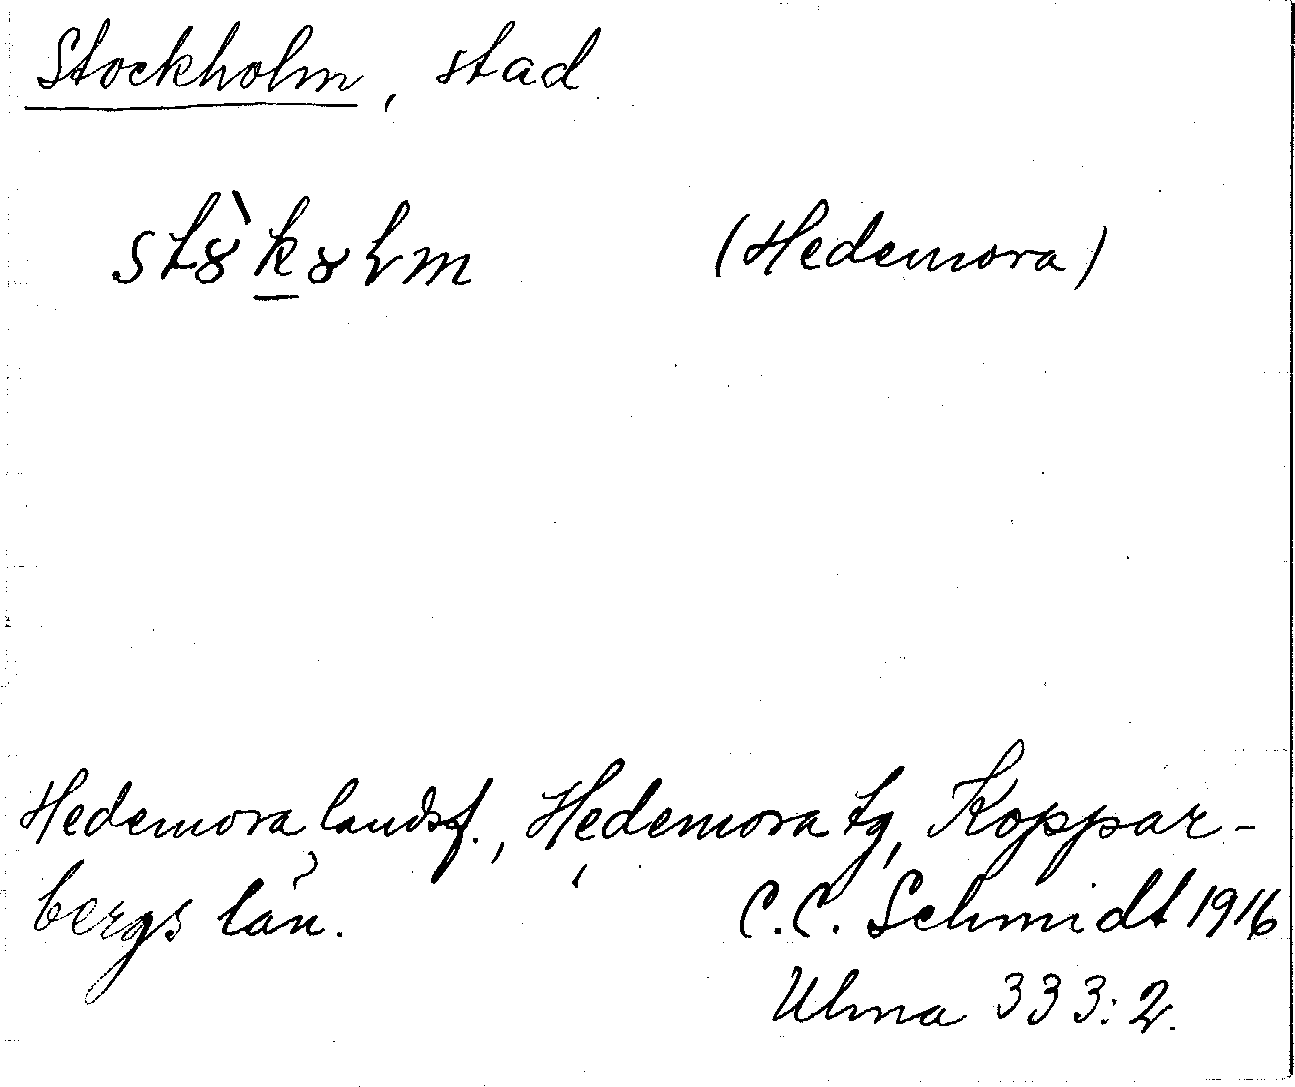 Stockholm, stad
(Hedemora)
Hedemora landsf., Hedemora tg, Koppar-
bergs län.
C.C. Schmidt 1916
Ulma 333:2.